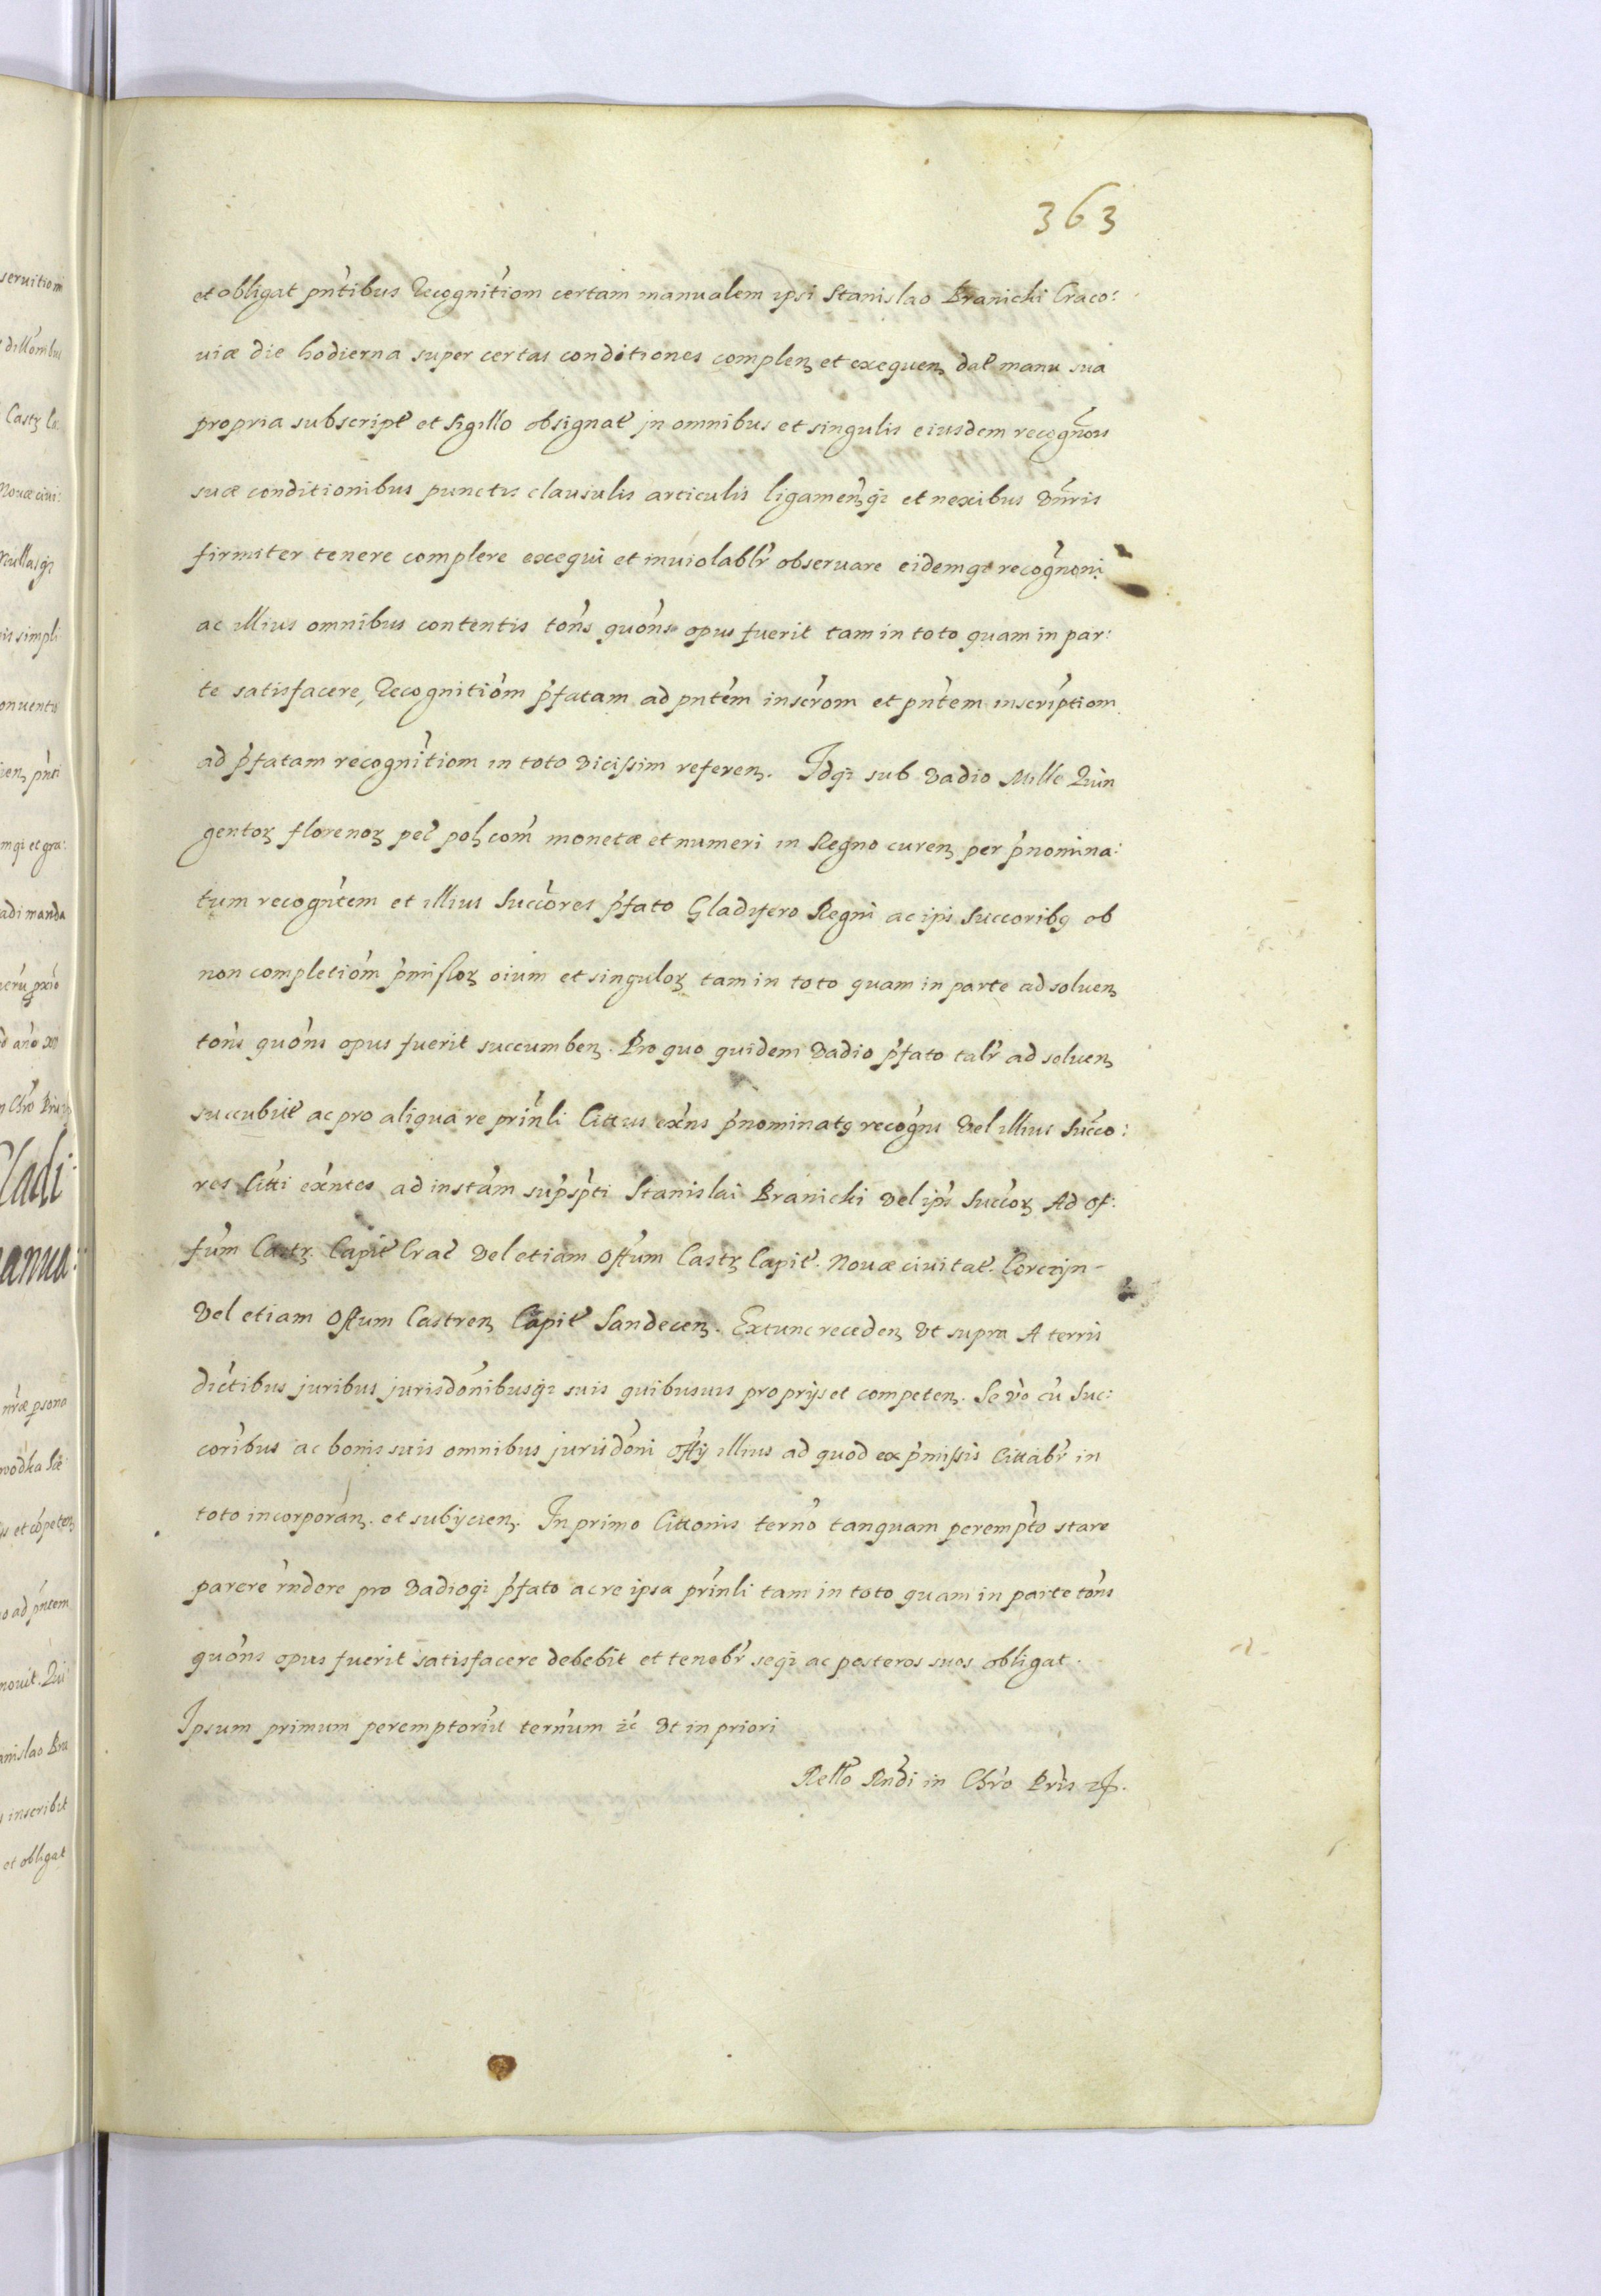 363
et obligat pñtibus Recognitiom certam manualem ipsi Stanislao Branicki Craco:
uiæ die hodierna super certas conditiones complenꝫ et exequenꝫ dat̃ manu sua
propria subscript̃ et sigillo obsignat̃ jn omnibus et singulis eiusdem recogñois
suæ conditionibus punctis clausulis articulis ligamenꝫqꝫ et nexibus vñiris
firmiter tenere complere exequi et inuiolablr̃ obseruare eidemqꝫ recogñoni
ac illius omnibus contentis tom̃s quom̃s opus fuerit tam in toto quam in par:
te satisfacere, Recognitiom p̃fatam ad pñtem inscr̃om et pñtem inscriptiom
ad p̃fatam recognitiom in toto vicissim referenꝫ. Idqꝫ sub vadio Mille Quin
gentoꝝ florenoꝝ pec̃ polꝫ com̃ monetæ et numeri in Regno curenꝫ per p̃nomina:
tum recogñtem et illius Succores p̃fato Gladifero Regni ac ip̃s Succoribꝫ ob
non completiom p̃missoꝝ oium et singuloꝝ tam in toto quam in parte ad soluenꝫ
tom̃s quom̃s opus fuerit succumbenꝫ. Pro quo quidem vadio p̃fato talr̃ ad soluenꝫ
succubit̃ ac pro aliqua re prinl̃i Cittus ex̃ns p̃nominatꝫ recogñs vel illius Succo:
res Citti ex̃ntes ad instam̃ sup̃sp̃ti Stanislai Branicki vel ip̃s Succoꝝ Ad of:
fum Castꝝ. Capit̃ Crac̃ vel etiam Offum Castꝝ Capit̃. Nouæ ciuitat̃. Corczyn-
vel etiam Offum Castrenꝫ Capit̃ Sandecenꝫ. Extunc recedenꝫ vt supra A terris
dictibus juribus jurisdonibusqꝫ suis quibusuis proprijs et competenꝫ. Se vo cũ Suc:
coribus ac bonis suis omnibus jurisdoni offij illius ad quod ex p̃missis Cittabr̃ in
toto incorporanꝫ. et subijcienꝫ. In primo Cittonis terno tanquam perempto stare
parere rñdere pro vadioqꝫ p̃fato ac re ipsa prinl̃i tam in toto quam in parte tom̃s
quom̃s opus fuerit satisfacere debebit et tenebr̃ seqꝫ ac posteros suos obligat.
Ipsum primum peremptoriũ ternum ꝛc̃ vt in priori
Rel̃lo Rñdi in Chr̃o Pris